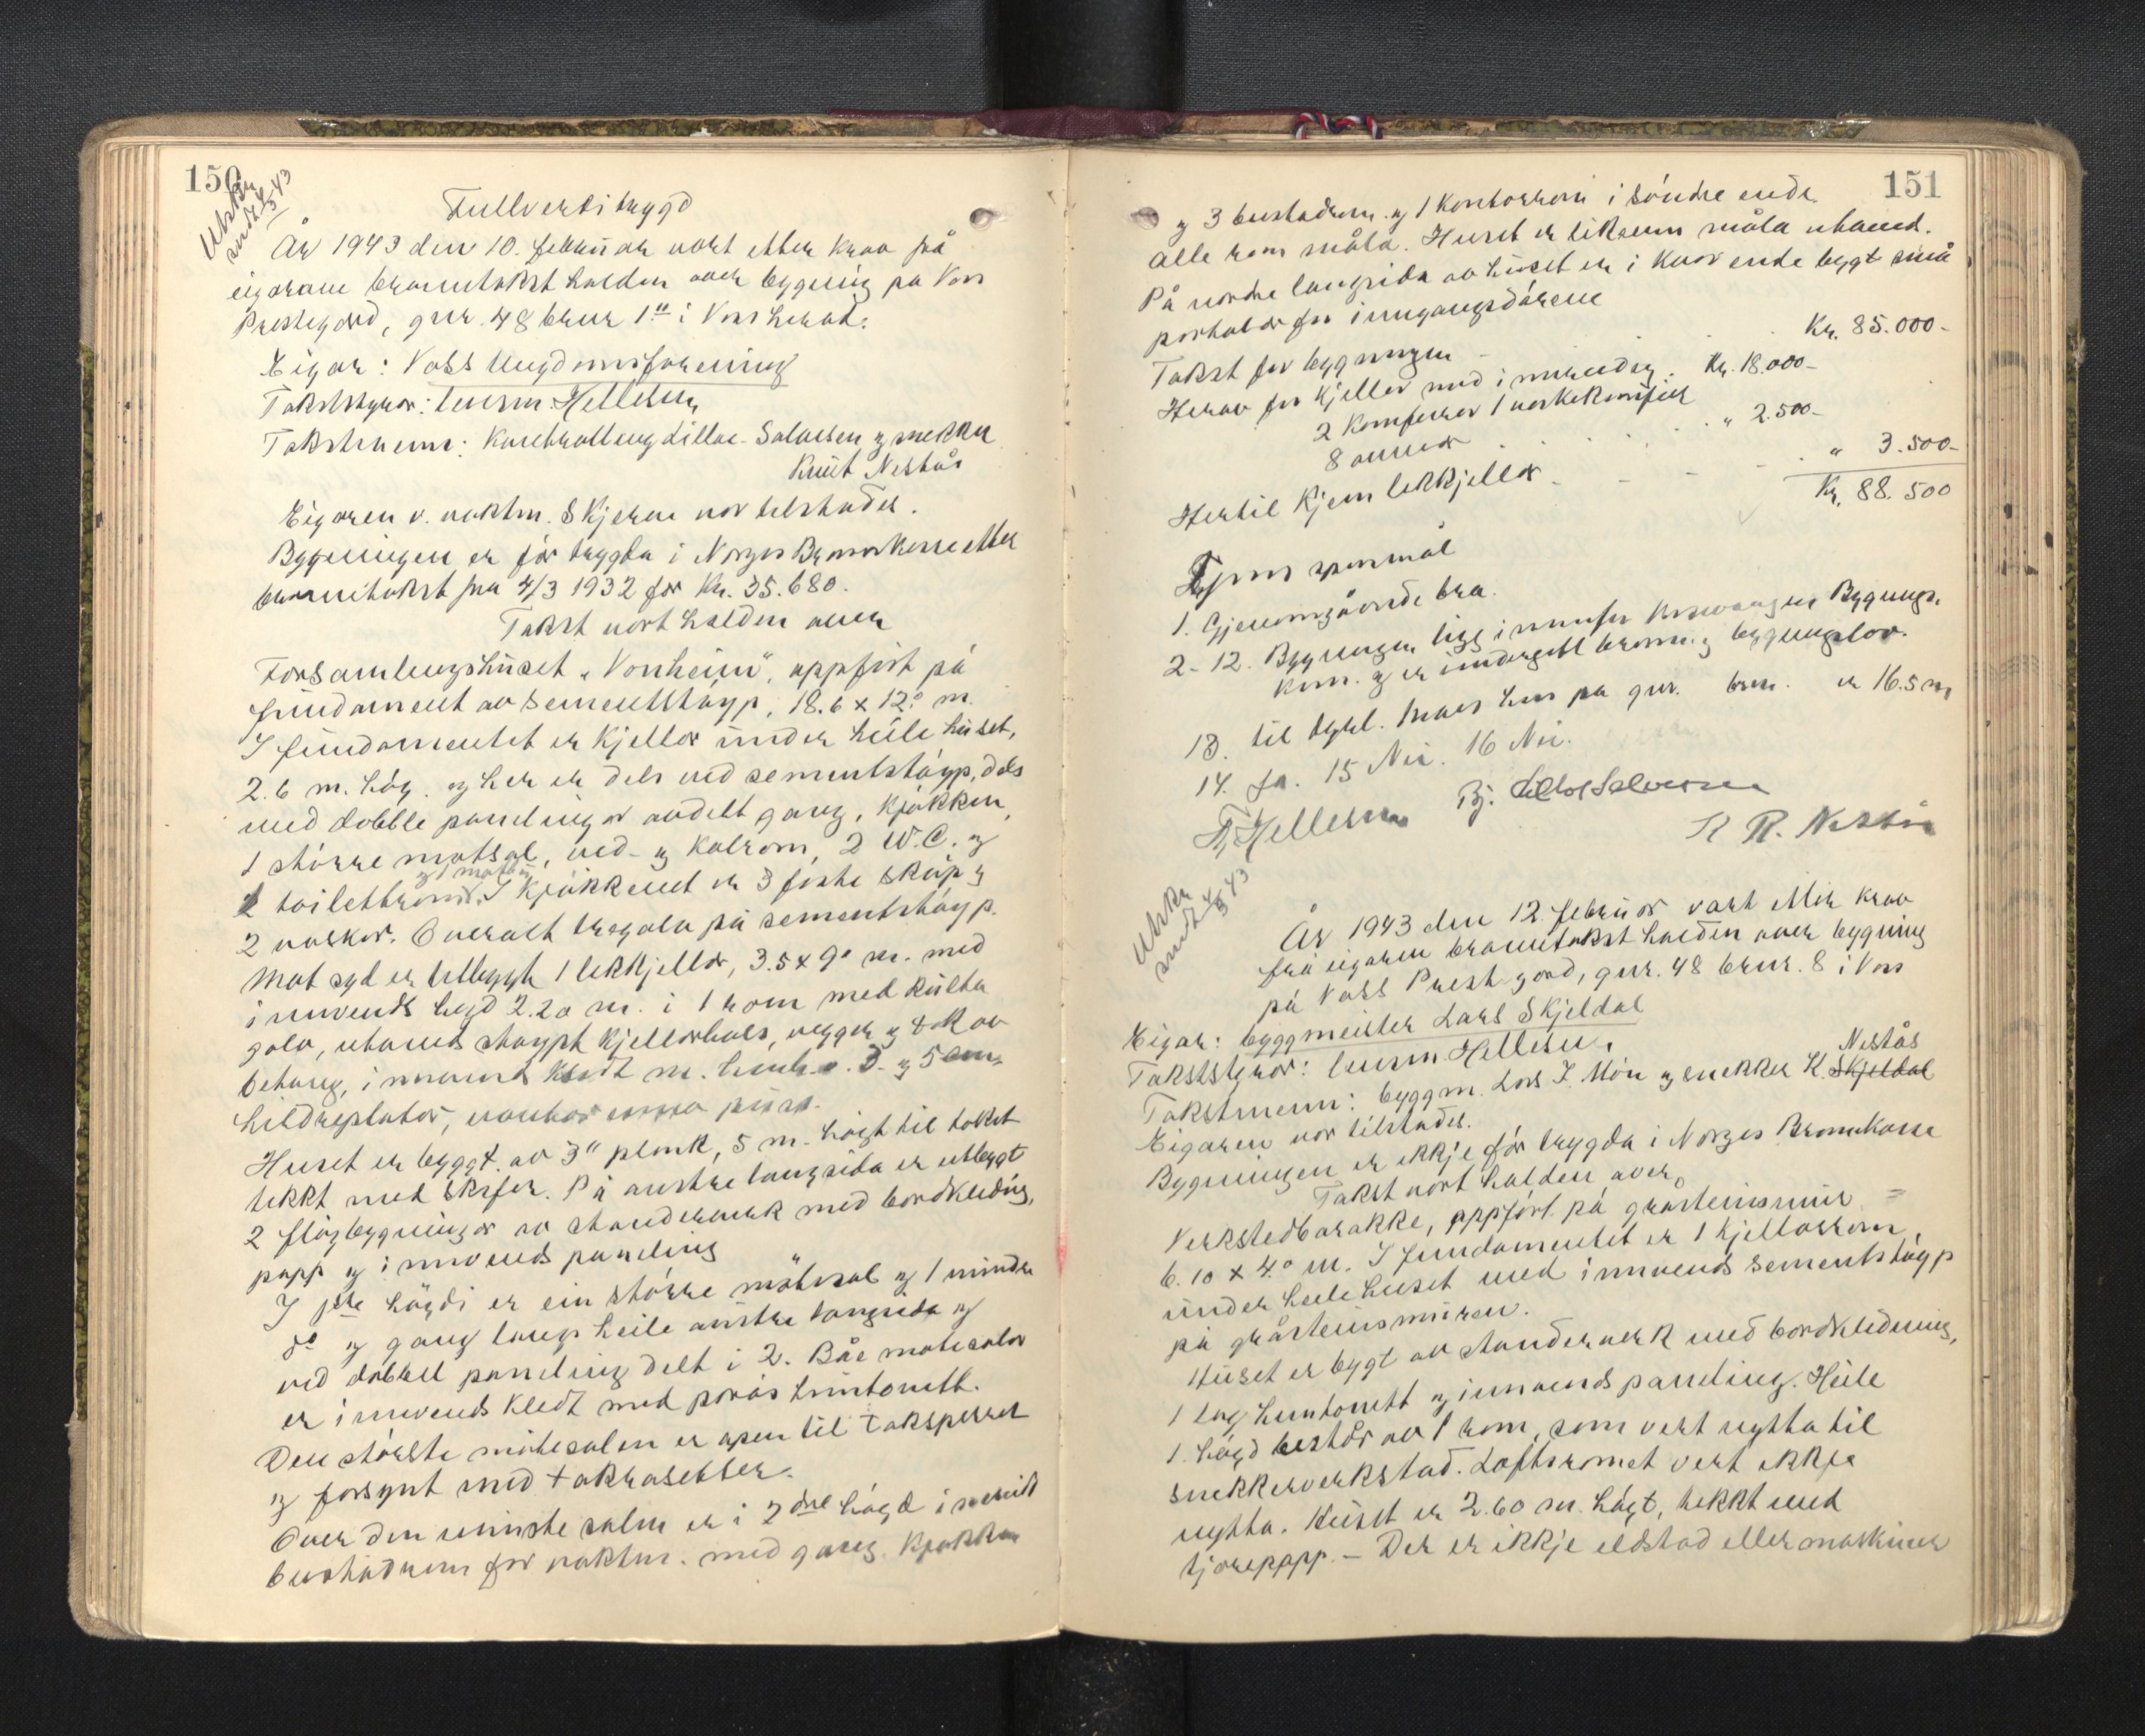 150
Utskr.
sendt 4/5 43
Fullverditrygd
År 1943 den 10. februar vart etter krav frå
eigaren branntakst halden over bygning på Voss
Prestegard, gnr. 48 bnr 1 i Voss herad.
Eigar: Voss Ungdomsforening
Takststyrar: lensm. Hellesen
Takstmenn: Lillos-Salvesen og snekker
Knut Nestås
Eigaren v. vaktm. Skjerve var tilstades.
Bygningen er før trygda i Norges Brannkasse etter
branntakst frå 4/3 1932 for Kr. 35.680.
Takst vart halden over
Forsamlingshuset "Vonheim", oppført på
fundament av sementstøyp, 18.6 x 12.0 m.
I fundamentet er kjellar under heile huset,
2.6 m. høg. og her er dels ved sementstøyp, dels
med dobble panelingar avdelt gang, kjøkken,
1 større matsal, ved- og kolrom, 2 W.C. og
2 toilettrom. I kjøkkenet er 3 faste skåp og
2 vaskar. Overalt tregolv på sementstøyp.
Mot syd er utbygt 1 lekkjellar, 3.5 x 9.0 m. med
innvendig høgd 2.20 m. i 1 rom med kulta
golv, utvends støypt kjellarhals, vegger og tak av
betong, innvends kledt m. og 5 cm.
Huset er byggt av 3" plank, 5 m. høgt til taket
tekkt med skifer. På austre langsida er utbygt
2 fløybygningar av standerverk med bordkledning,
papp og innvends paneling
I 1ste høgdi er ein større møtesal og 1 mindre
do og gang langs heile austre langsida og
ved dobbel paneling delt i 2. Båe møtesalar
er innvends kledt med porøs huntonitt.
Den største møtesalen er open til taksperrer
og forsynt med takrosetter.
Over den minste salen er i 2dre høgd innreidt
bustadrom for vaktm. med gang. kjøkken
151
og 3 bustadrom og 1 kontorrom i søndre ende
Alle rom måla. Huset er liksom måla utvend.
På nordre langsida av huset er i kvar ende bygt små
portalar for inngangsdørene
Takst for bygningen - Kr. 85.000-
Herav for kjellar med innreiding. Kr. 18.000-
2 komfyrar 1 vaskekomfyr
8 omnar " 2.500-
Hertil kjem lekkjellar " 3.500-
Kr. 88.500
Spursmål
1. Gjenomgåande bra.
2-12. Bygningen ligg innafor Bygnings-
kom. og er undergitt brann- og bygningslov.
13. til hus på gnr. bnr. er 16.5 m
14. Ja. 15 Nei. 16 Nei.
Hellesen Bj. Lillos Salvesen
K R. Nestås
Utskr.
sendt 4/5 43
År 1943 den 12. februar vart etter krav
frå eigaren branntakst halden over bygning
på Voss Prestgard, gnr. 48 bnr. 8 i Voss
Eigar: byggmeister Lars Skjeldal
Takststyrar: lensm Hellesen.
Nestås
Takstmenn: byggm. Lars I. Møn og snekker K. Skjeldal
Eigaren var tilstades.
Bygningen er ikkje før trygda i Norges Brannkasse
Takst vart halden over
Verkstedbarakke, oppført på gråsteinsmur
6.10 x 4.0 m. I fundamentet er 1 kjellarrom
under heile huset med innvends sementstøyp
på gråsteinsmuren.
Huset er bygt av standerverk med bordkledning,
1 lag huntonitt og innvends paneling. Heile
1. høgd består av 1 rom, som vert nytta til
snekkerverkstad. Loftsromet vert ikkje
nytta. Huset er 2.60 m. høgt, tekkt med
tjørepapp. - Der er ikkje eldstad eller maskiner